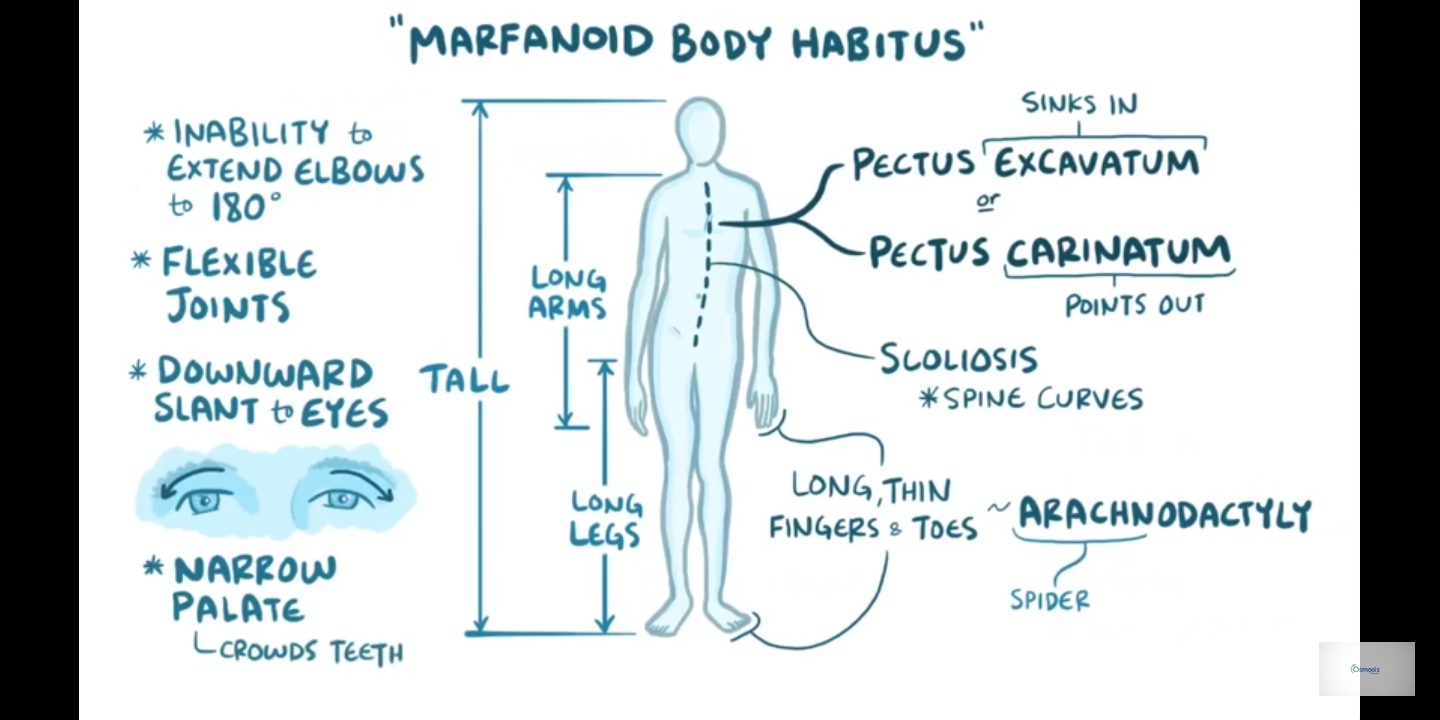 "MARFANOID BODY HABITUS"
* INABILITY to
EXTEND ELBOWS
to 180°
* FLEXIBLE
JOINTS
* DOWNWARD
SLANT to EYES
* NARROW
PALATE
CROWDS TEETH
TALL
LONG
ARMS
LONG
LEGS
SINKS IN
PECTUS EXCAVATUM
or
PECTUS CARINATUM
POINTS OUT
SCOLIOSIS
* SPINE CURVES
LONG, THIN
FINGERS & TOES
~ ARACHNODACTYLY
SPIDER
Osmosis